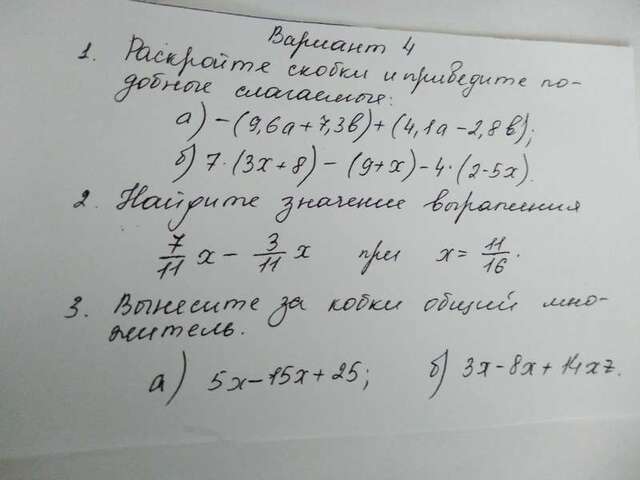 Вариант 4
1. Раскройте скобки и приведите по-
добные слагаемые:
а) -(9,6a+7,3b)+(4,1a-2,8b);
б) 7·(3x+8)-(9+x)-4·(2-5x).
2. Найдите значение выражения
7/11 x - 3/11 x при x = 11/16.
3. Вынесите за кобки общий мно-
житель.
а) 5x-15x+25; б) 3x-8x+14xz.